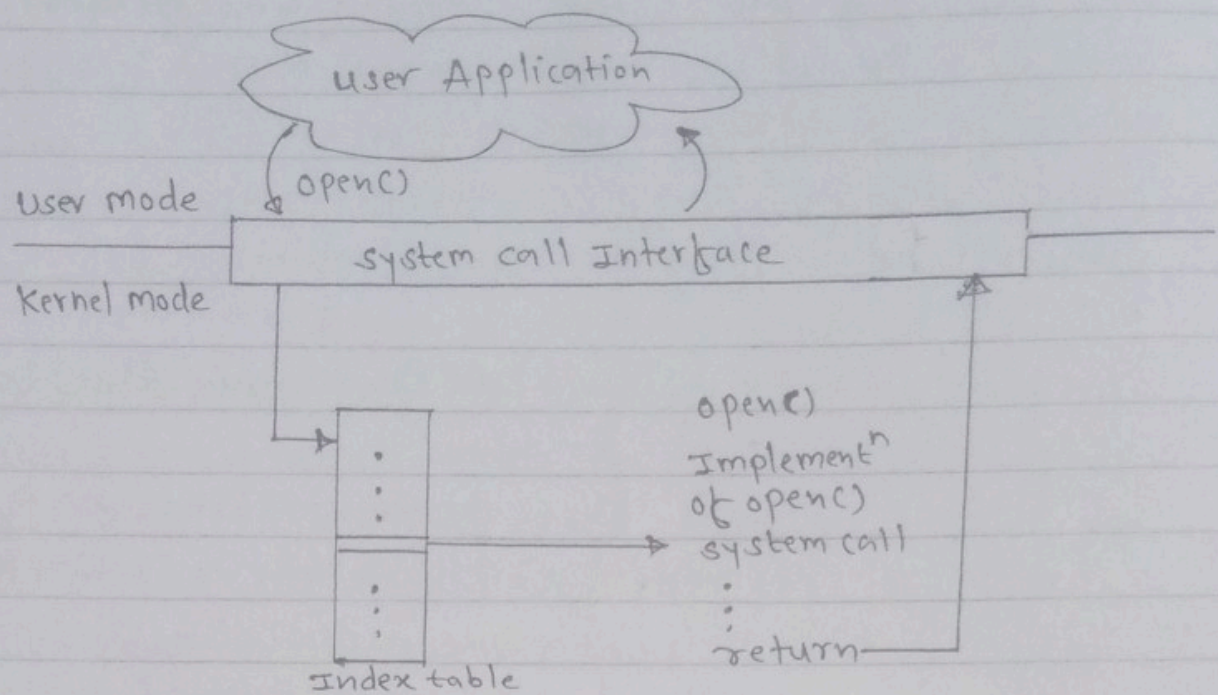 user Application
open()
User mode
system call Interface
Kernel mode
open()
Implementⁿ
of open()
system call
return
Index table